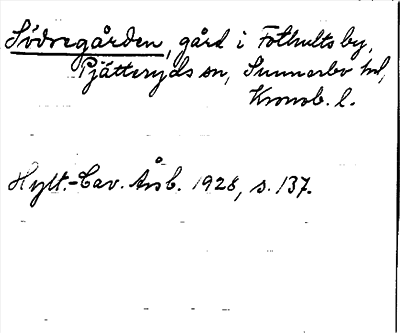 Södregården, gård i Fothults by,
Pjätteryds sn, Sunnerbo hd,
Kronob. l.
Hylt.-Cav. Årsb. 1928, s. 137.